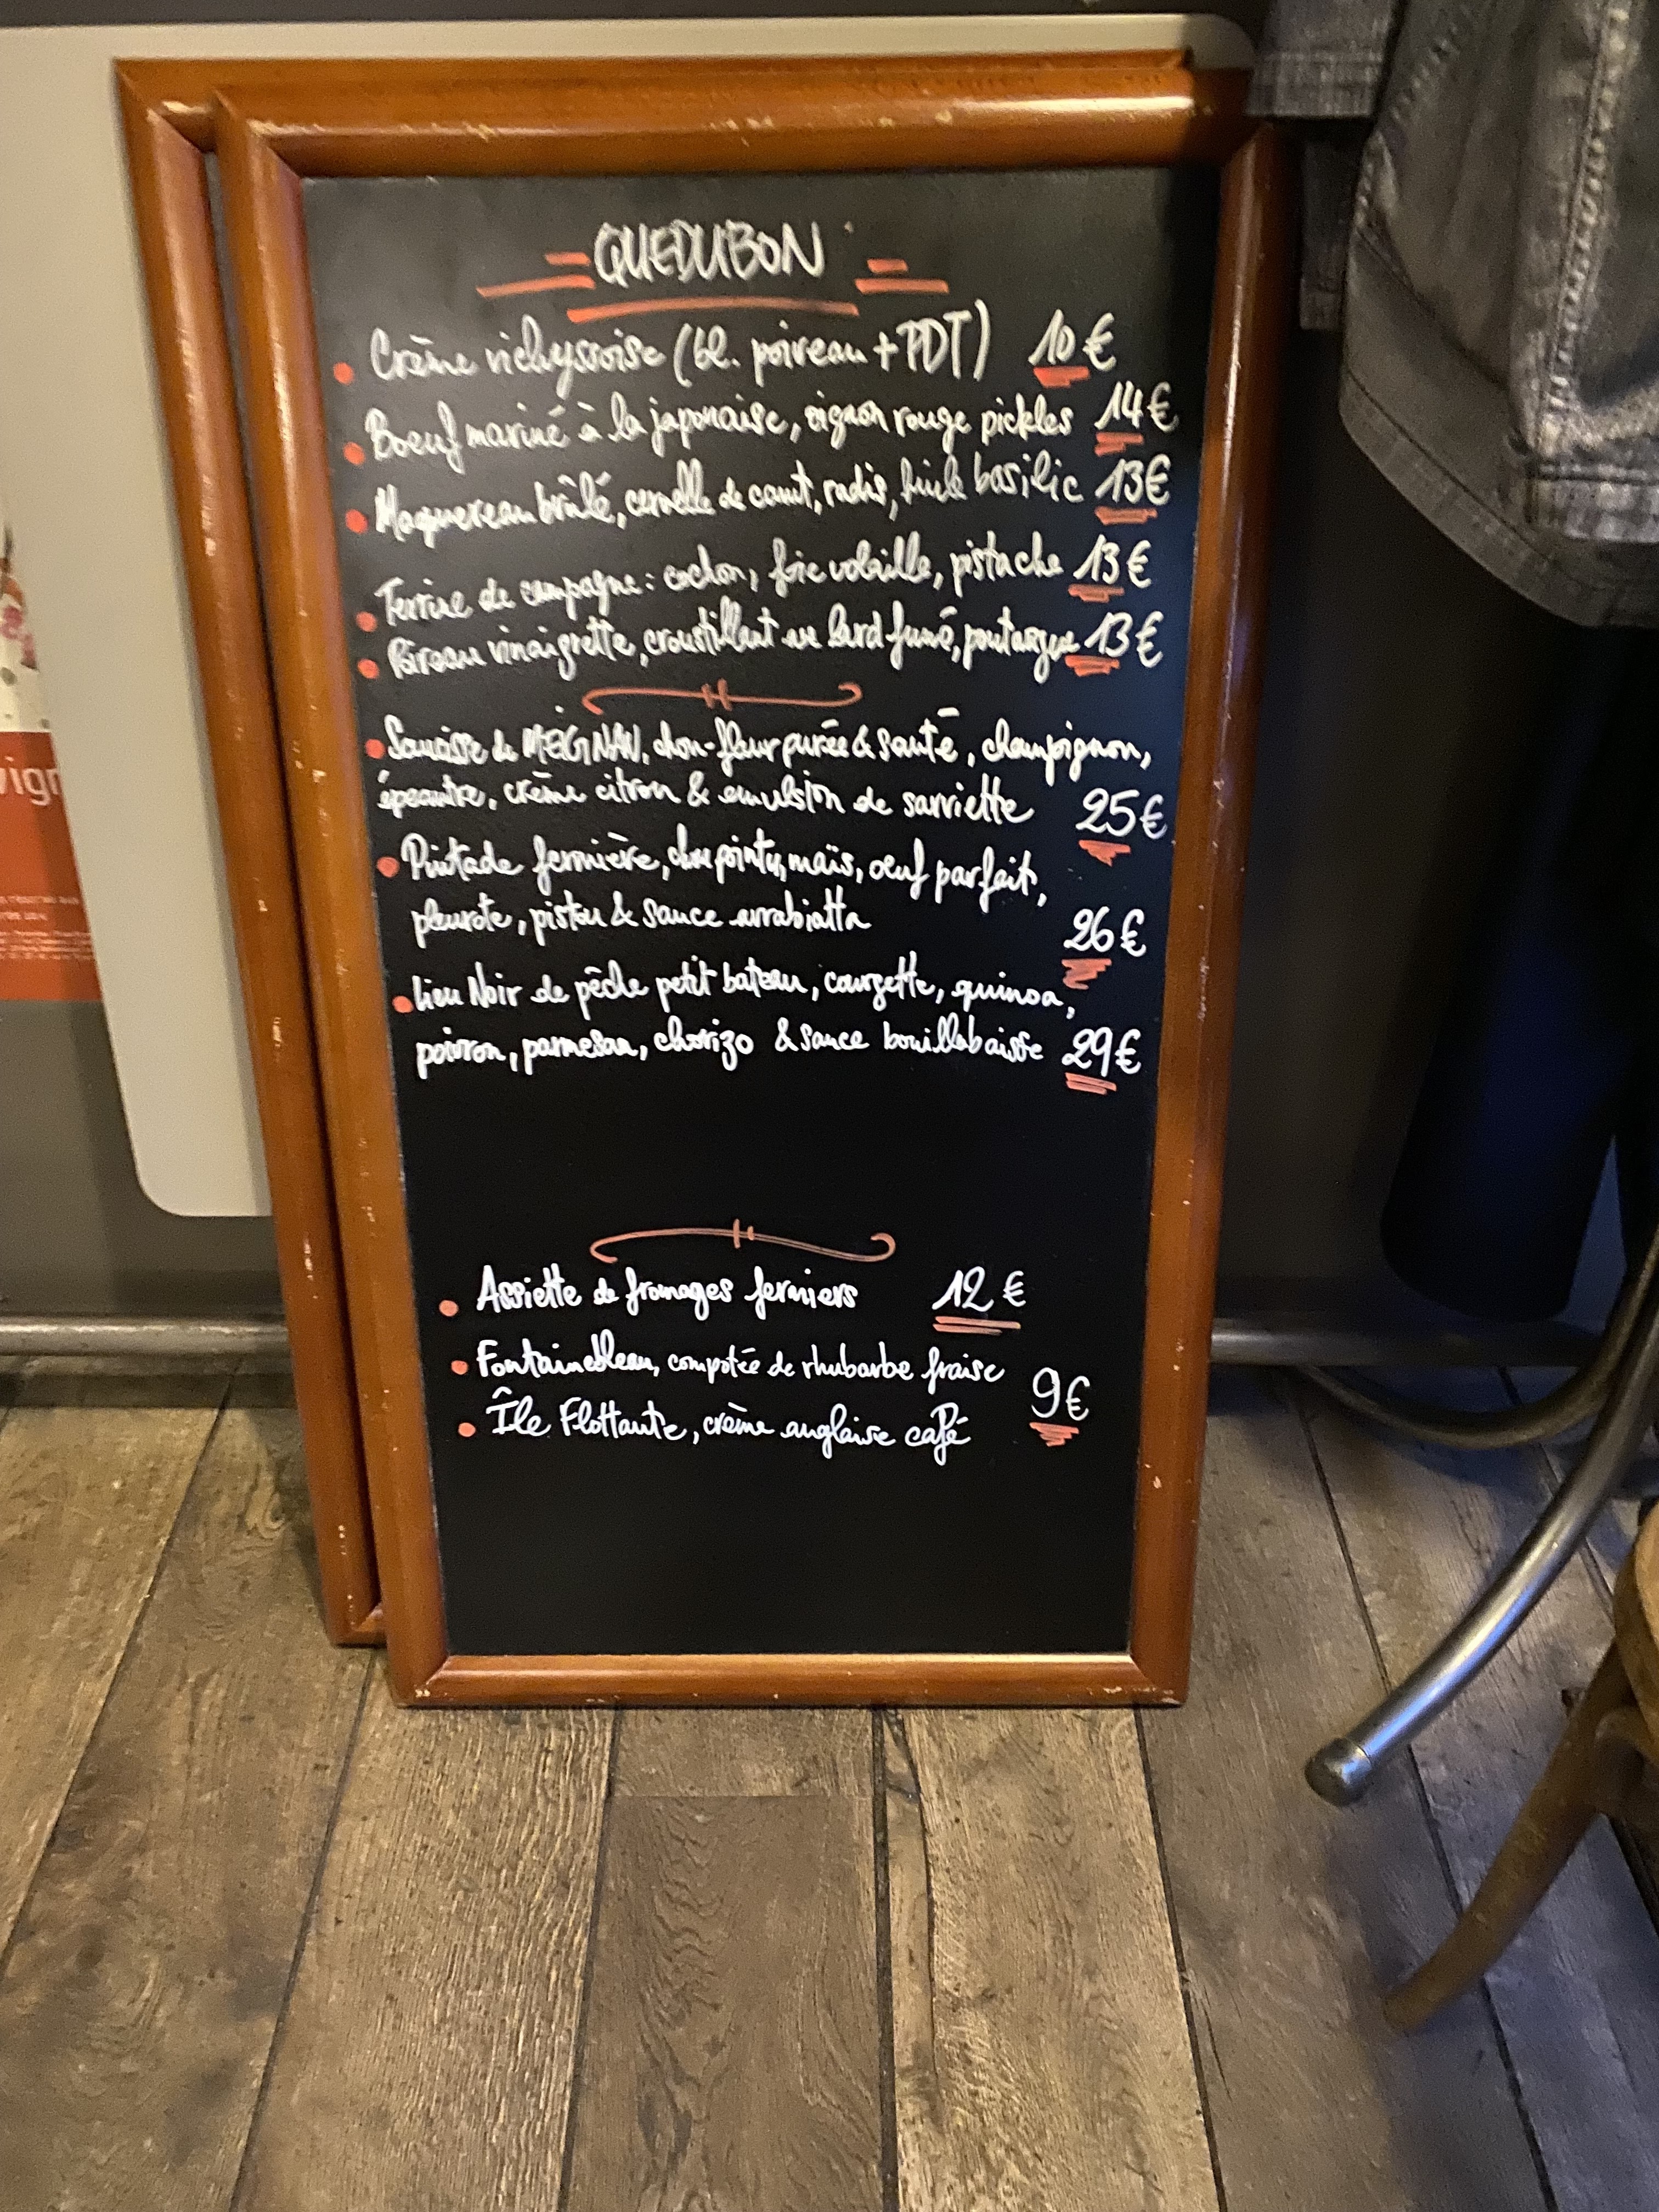 QUEDUBON
Crème vichyssoise (bl. poireau + PDT) 10€
Boeuf mariné à la japonaise, oignon rouge pickles 14€
Maquereau brûlé, cervelle de canut, radis, huile basilic 13€
Terrine de campagne : cochon, foie volaille, pistache 13€
Poireau vinaigrette, croustillant au lard fumé, poutargue 13€
Saucisse de MEIGNAN, chou-fleur purée & sauté, champignon,
épeautre, crème citron & emulsion de sarriette 25€
Pintade fermière, chou pointu, maïs, oeuf parfait,
pleurote, pistou & sauce arrabiatta 26€
Lieu Noir de pêche petit bateau, courgette, quinoa,
poivron, parmesan, chorizo & sauce bouillabaisse 29€
Assiette de fromages fermiers 12€
Fontainebleau, compotée de rhubarbe fraise
Île Flottante, crème anglaise café 9€
vign